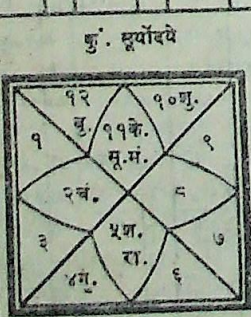 कुं. सूर्योदये
१२ १०शु.
बु. ११के.
१ सू.मं. ९
२चं. ८
५श.
३ रा. ७
४गु. ६